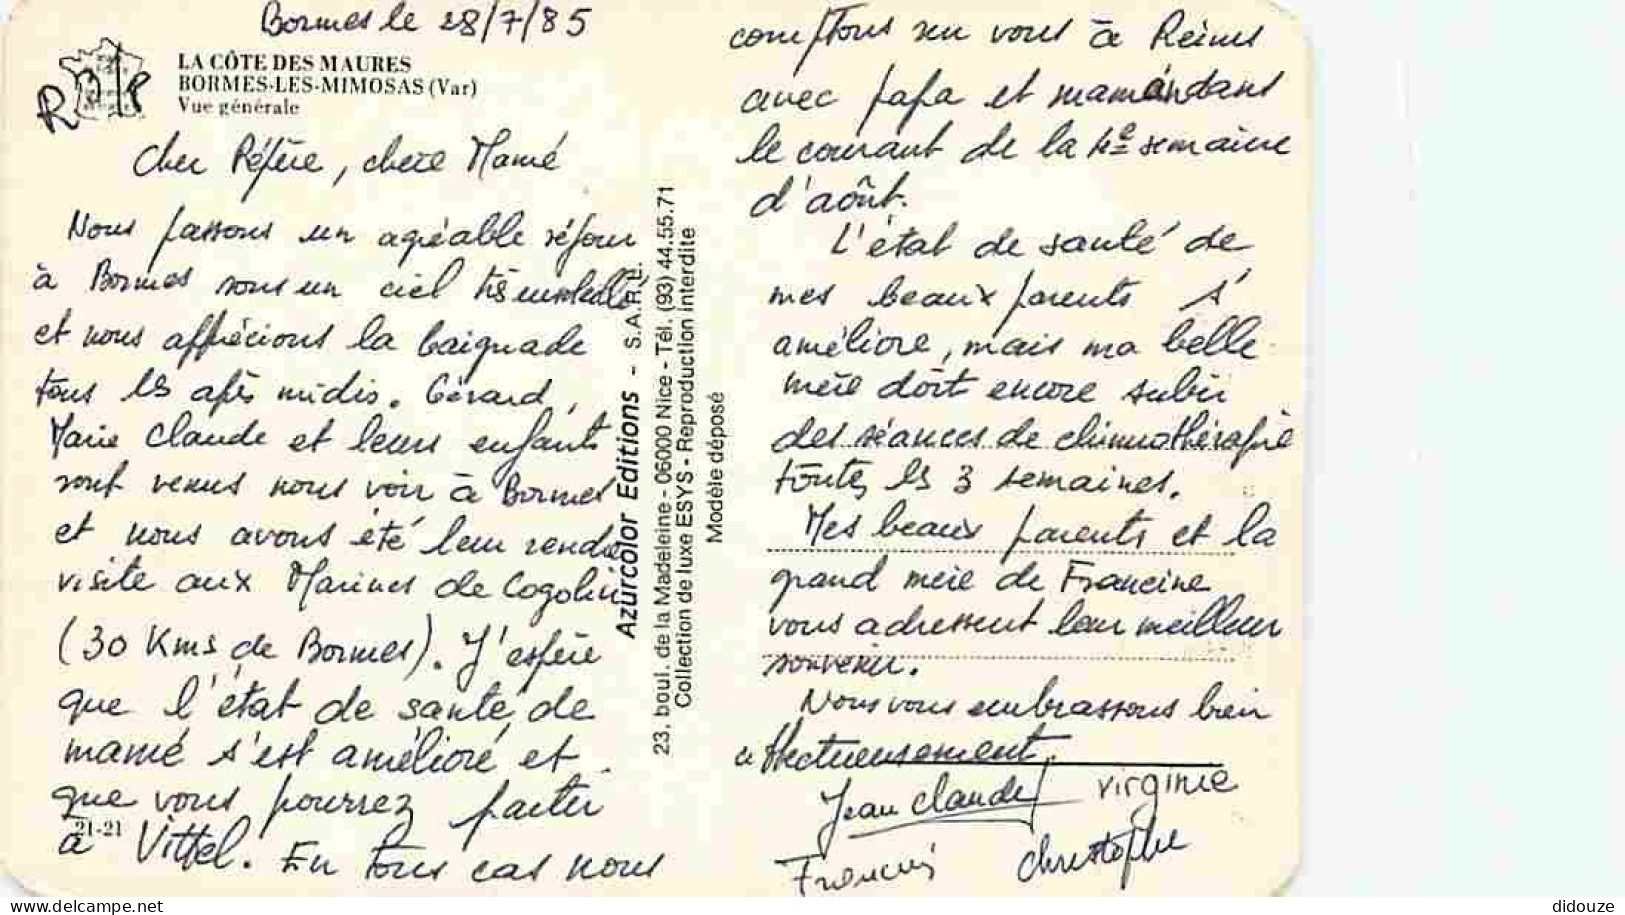 Bormes le 28/7/85
LA CÔTE DES MAURES
BORMES-LES-MIMOSAS (Var)
Vue générale
Cher Péfère, chère Mamé
Nous passons un agréable séjour
à Bormes sous un ciel très ensoleillé
et nous apprécions la baignade
tous les après midis. Gérard,
Marie Claude et leurs enfants
sont venus nous voir à Bormes
et nous avons été leur rendre
visite aux Marines de Cogolin
(30 Kms de Bormes). J'espère
que l'état de santé de
mamé s'est amélioré et
que vous pourrez partir
21-21
à Vittel. En tous cas nous
Azurcolor Editions - S.A.R.L.
23, boul. de la Madeleine - 06000 Nice - Tél. (93) 44.55.71
Collection de luxe ESYS - Reproduction interdite
Modèle déposé
comptons sur vous à Reims
avec papa et maman dans
le courant de la 4e semaine
d'août.
L'état de santé de
mes beaux parents s'
améliore, mais ma belle
mère doit encore subir
des séances de chimiothérapie
toutes les 3 semaines.
Mes beaux parents et la
grand mère de Francine
vous adressent leur meilleur
souvenir.
Nous vous embrassons bien
affectueusement.
Jean Claude
virginie
Christophe
didouze